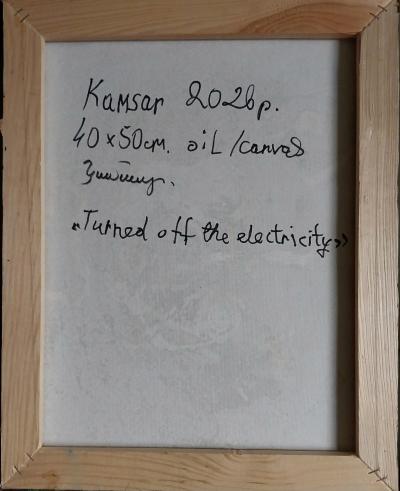 Kamsar 2026р.
40x50cm. oiL/canvas
"Turned off the electricity"